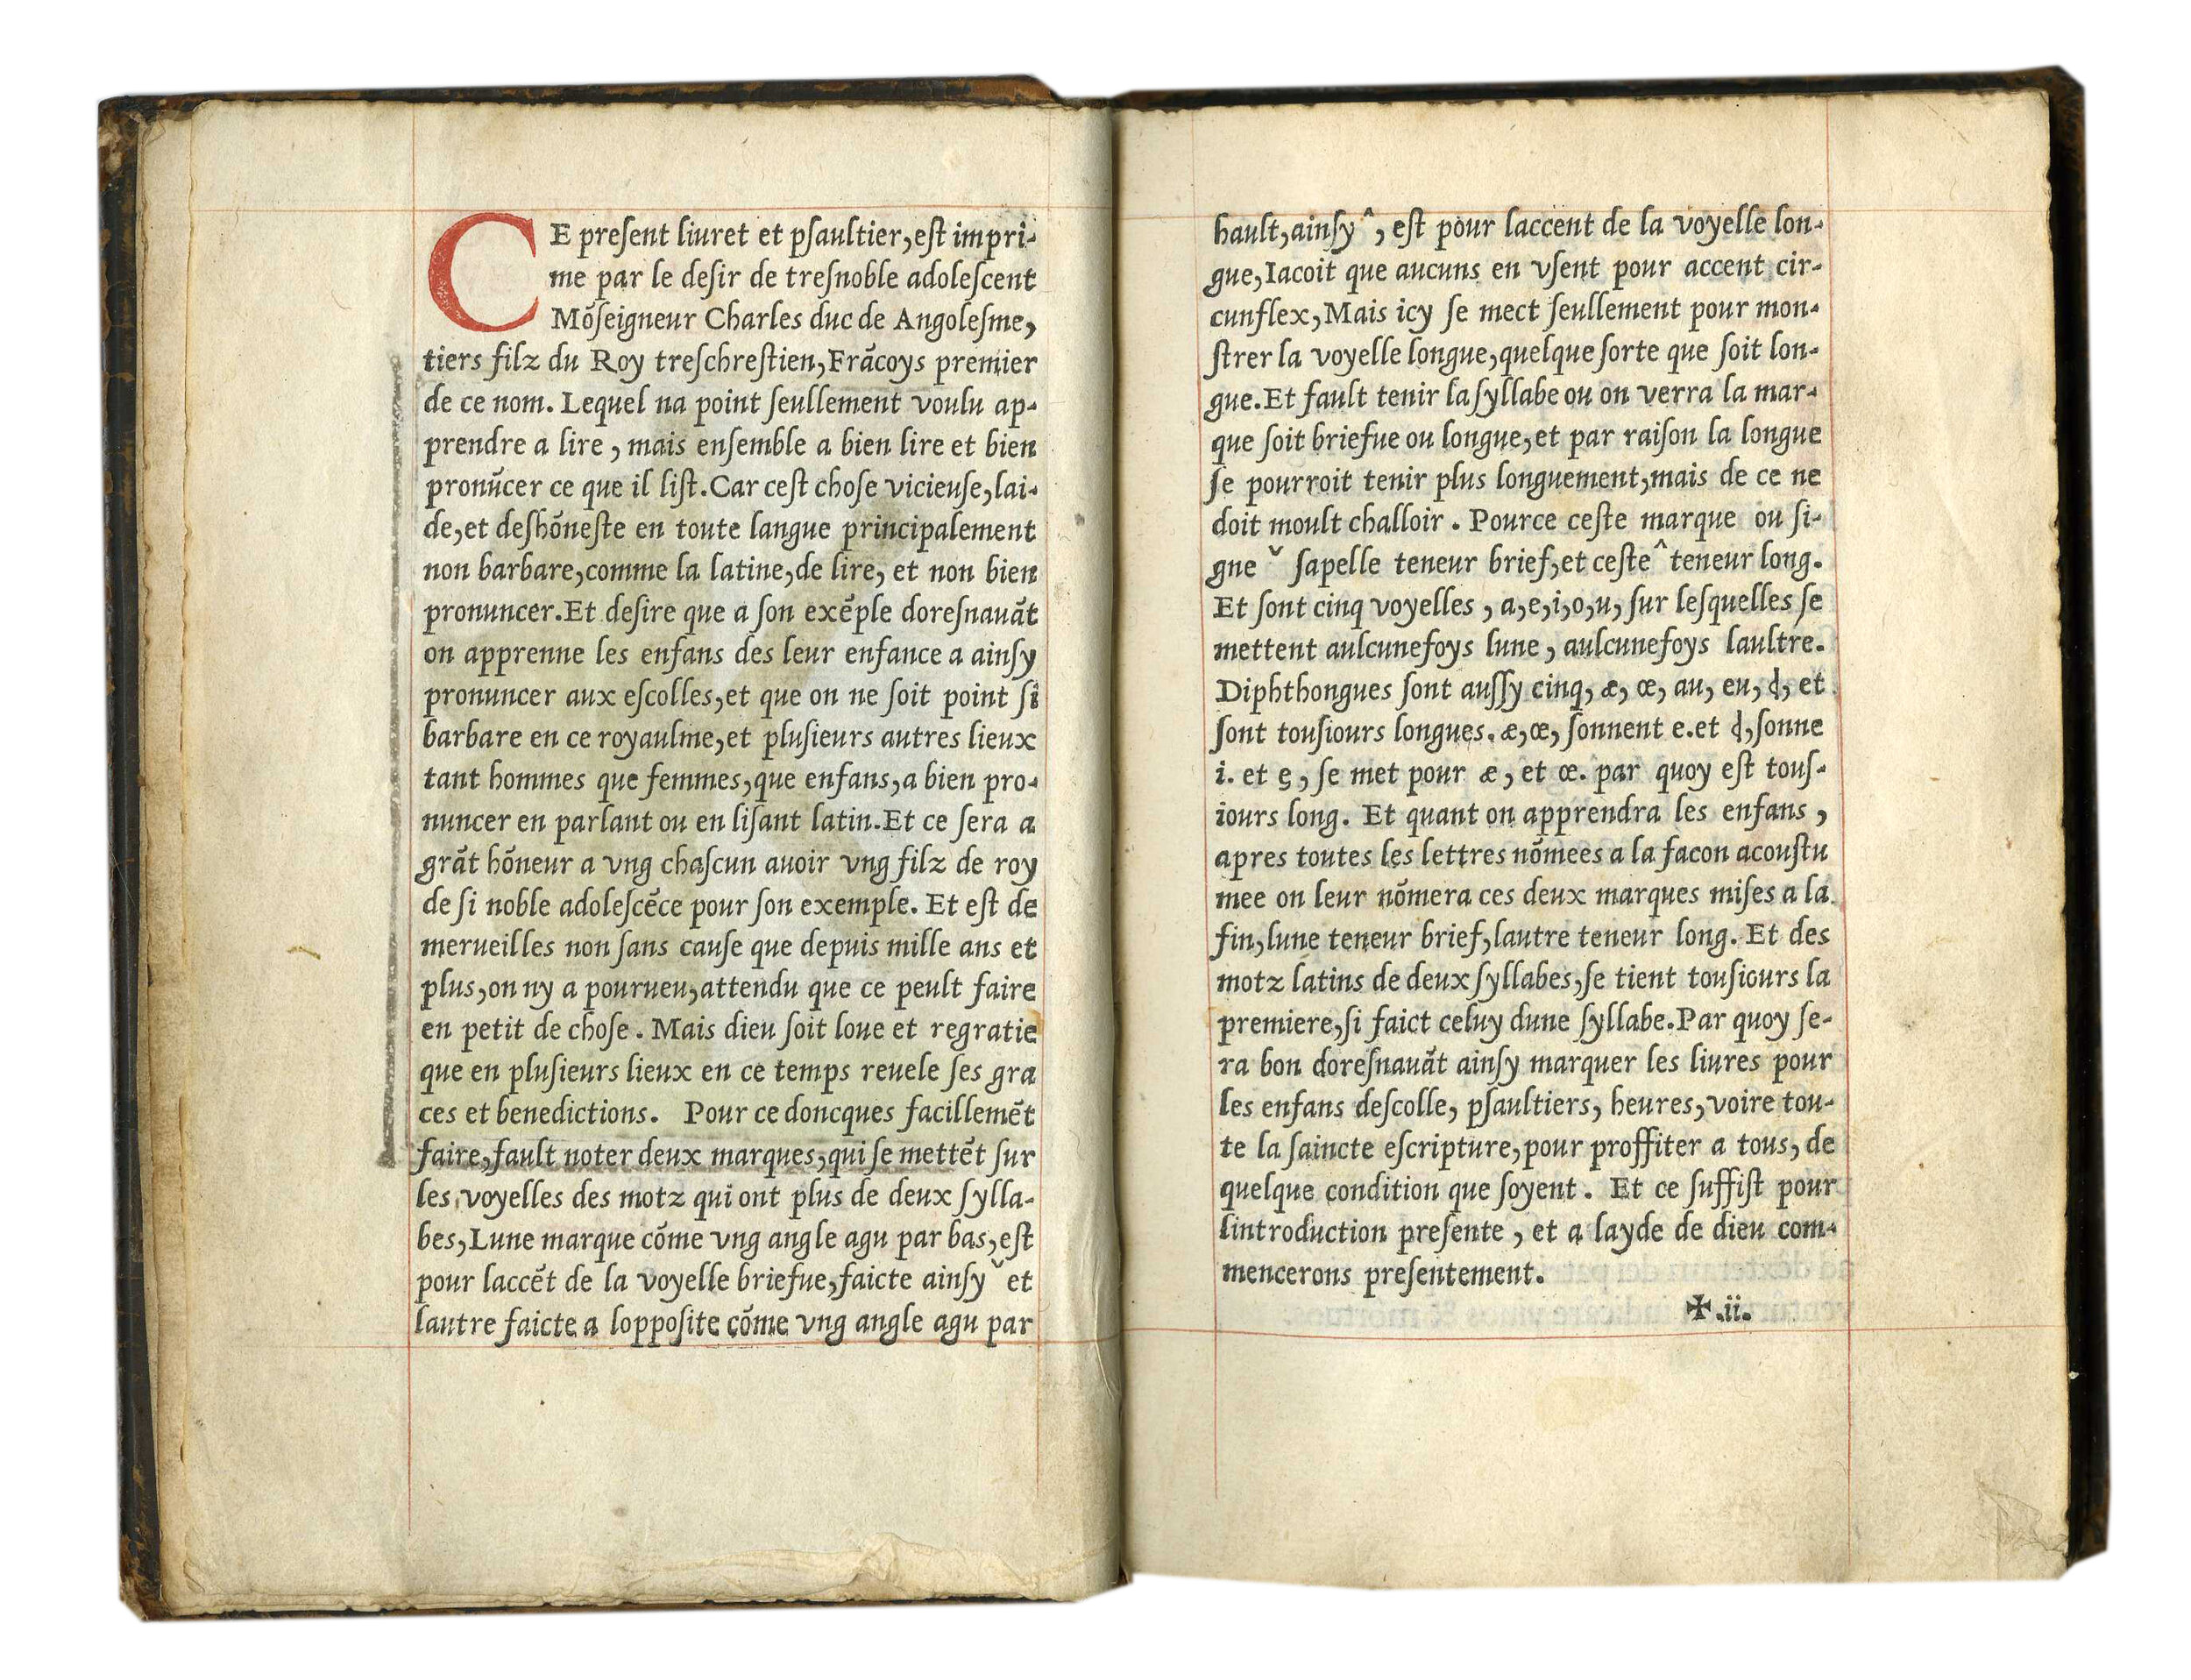 CE preſent liuret et pſaultier,eſt impri-
me par le deſir de treſnoble adoleſcent
Mōſeigneur Charles duc de Angoleſme,
tiers filz du Roy treſchreſtien,Frācoys premier
de ce nom. Lequel na point ſeullement voulu ap-
prendre a lire , mais enſemble a bien lire et bien
pronūcer ce que il liſt.Car ceſt choſe vicieuſe,lai-
de,et deſhōneſte en toute langue principalement
non barbare,comme la latine,de lire, et non bien
pronuncer.Et deſire que a ſon exēple doreſnauāt
on apprenne les enfans des leur enfance a ainſy
pronuncer aux eſcolles,et que on ne ſoit point ſi
barbare en ce royaulme,et pluſieurs autres lieux
tant hommes que femmes,que enfans,a bien pro-
nuncer en parlant ou en liſant latin.Et ce ſera a
grāt hōneur a vng chaſcun auoir vng filz de roy
de ſi noble adoleſcēce pour ſon exemple. Et eſt de
merueilles non ſans cauſe que depuis mille ans et
plus,on ny a pourueu,attendu que ce peult faire
en petit de choſe . Mais dieu ſoit loue et regratie
que en pluſieurs lieux en ce temps reuele ſes gra
ces et benedictions. Pour ce doncques facillemēt
faire,fault noter deux marques,qui ſe mettēt ſur
les voyelles des motz qui ont plus de deux ſylla-
bes,Lune marque cōme vng angle agu par bas,eſt
pour laccēt de la voyelle briefue,faicte ainſy ˇ et
lautre faicte a loppoſite cōme vng angle agu par
hault,ainſy ˆ , eſt pour laccent de la voyelle lon-
gue,Iacoit que aucuns en vſent pour accent cir-
cunflex,Mais icy ſe mect ſeullement pour mon-
ſtrer la voyelle longue,quelque ſorte que ſoit lon-
gue.Et fault tenir la ſyllabe ou on verra la mar-
que ſoit briefue ou longue,et par raiſon la longue
ſe pourroit tenir plus longuement,mais de ce ne
doit moult challoir . Pource ceſte marque ou ſi-
gne ˇ ſapelle teneur brief,et ceſte ˆ teneur long.
Et ſont cinq voyelles , a,e,i,o,u, ſur leſquelles ſe
mettent aulcunefoys lune , aulcunefoys laultre.
Diphthongues ſont auſſy cinq, æ, œ, au, eu, ꝡ, et
ſont touſiours longues. æ,œ, ſonnent e.et ꝡ,ſonne
i. et ę, ſe met pour æ, et œ. par quoy eſt touſ-
iours long. Et quant on apprendra les enfans ,
apres toutes les lettres nōmees a la facon acouſtu
mee on leur nōmera ces deux marques miſes a la
fin,lune teneur brief,lautre teneur long. Et des
motz latins de deux ſyllabes,ſe tient touſiours la
premiere,ſi faict celuy dune ſyllabe.Par quoy ſe-
ra bon doreſnauāt ainſy marquer les liures pour
les enfans deſcolle, pſaultiers, heures,voire tou-
te la ſaincte eſcripture,pour proffiter a tous, de
quelque condition que ſoyent . Et ce ſuffiſt pour
lintroduction preſente , et a layde de dieu com-
mencerons preſentement.
✠.ii.